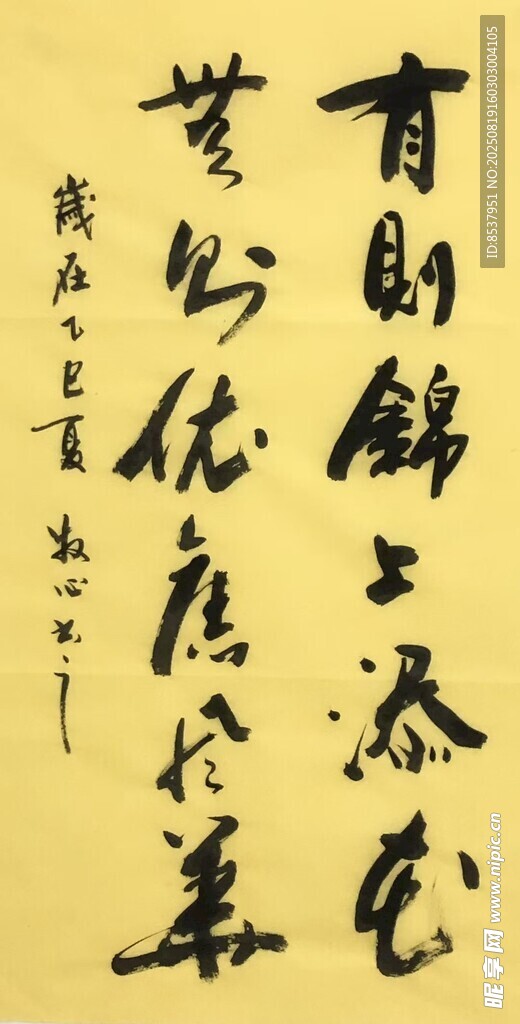 有則錦上添花
無則依舊風華
歲在乙巳夏 牧心書
ID:8537951 NO:20250819160303004105
昵享网 www.nipic.cn